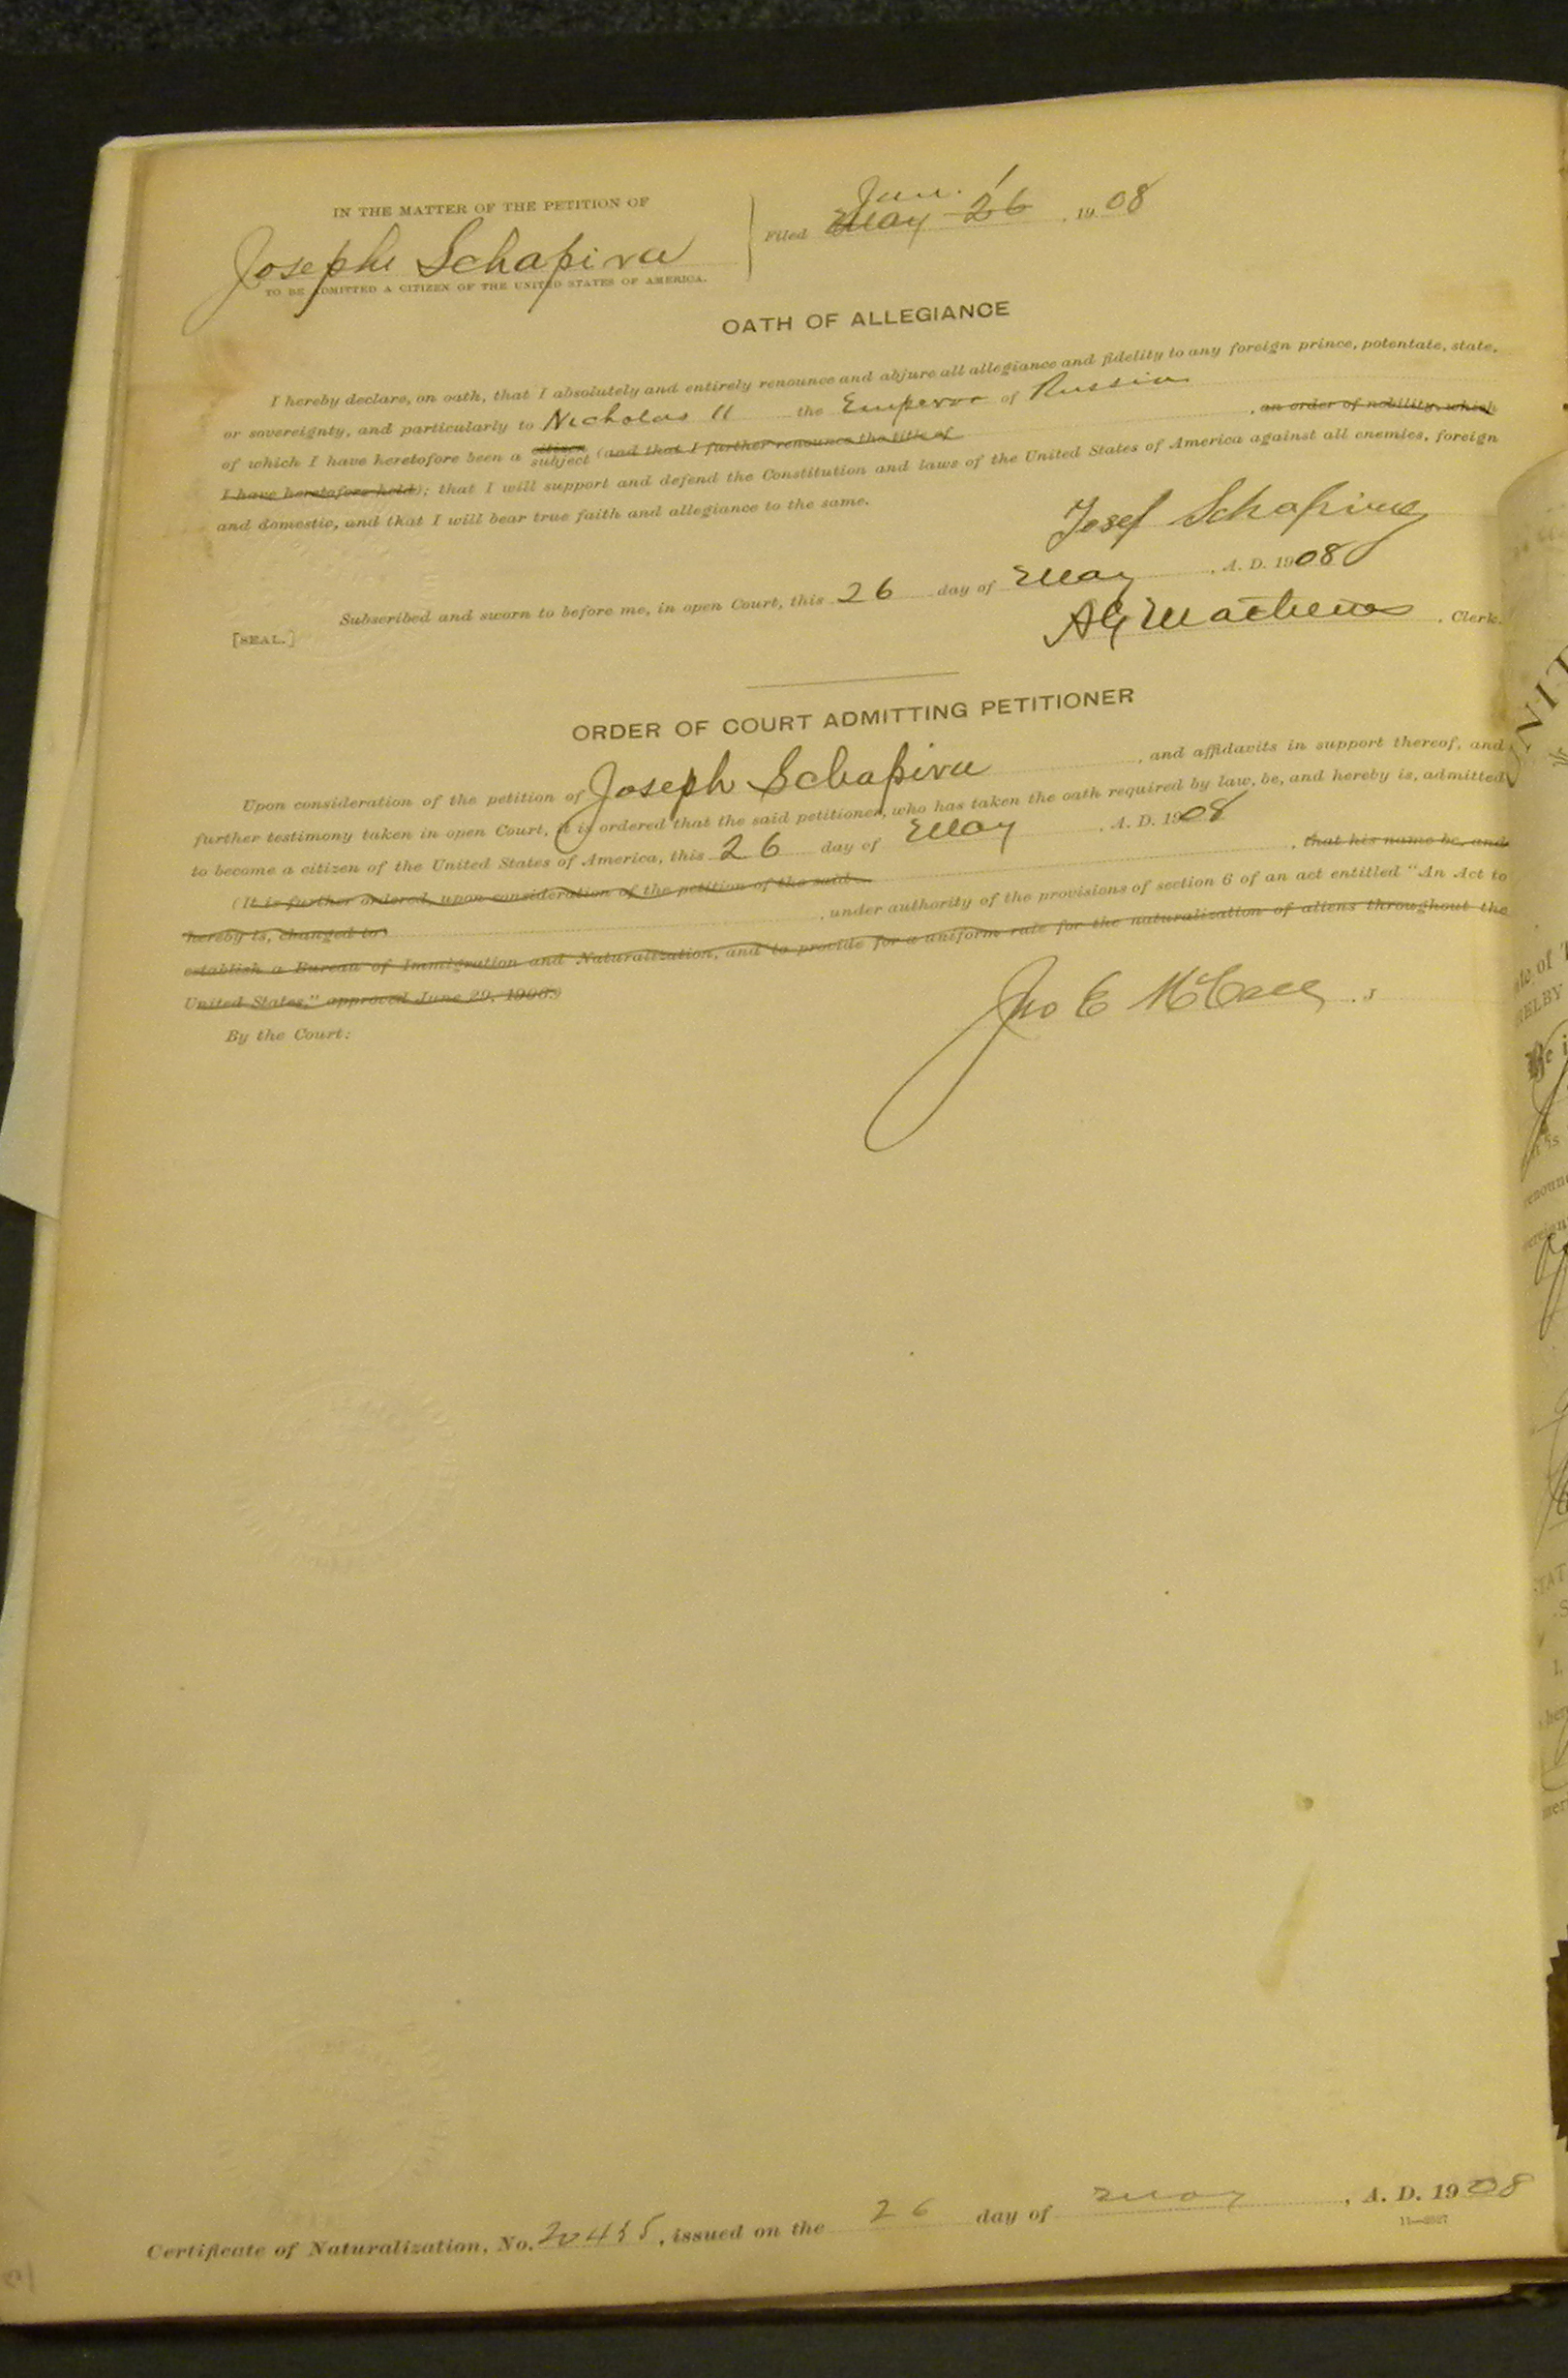 IN THE MATTER OF THE PETITION OF
Joseph Schapira
TO BE ADMITTED A CITIZEN OF THE UNITED STATES OF AMERICA.
Jan. 1
Filed May 26, 1908
OATH OF ALLEGIANCE
I hereby declare, on oath, that I absolutely and entirely renounce and abjure all allegiance and fidelity to any foreign prince, potentate, state,
or sovereignty, and particularly to Nicholas II the Emperor of Russia
of which I have heretofore been a citizen subject (and that I further renounce the title of , an order of nobility, which
I have heretofore held); that I will support and defend the Constitution and laws of the United States of America against all enemies, foreign
and domestic, and that I will bear true faith and allegiance to the same.
Josef Schapira
Subscribed and sworn to before me, in open Court, this 26 day of May, A. D. 1908
[SEAL.]
A G Mathews, Clerk.
ORDER OF COURT ADMITTING PETITIONER
Upon consideration of the petition of Joseph Schapira, and affidavits in support thereof, and
further testimony taken in open Court, it is ordered that the said petitioner, who has taken the oath required by law, be, and hereby is, admitted
to become a citizen of the United States of America, this 26 day of May, A. D. 1908
(It is further ordered, upon consideration of the petition of the said , that his name be, and
hereby is, changed to , under authority of the provisions of section 6 of an act entitled "An Act to
establish a Bureau of Immigration and Naturalization, and to provide for a uniform rule for the naturalization of aliens throughout the
United States," approved June 29, 1906.)
By the Court:
Jno E McCall, J
Certificate of Naturalization, No. 20455, issued on the 26 day of May, A. D. 1908